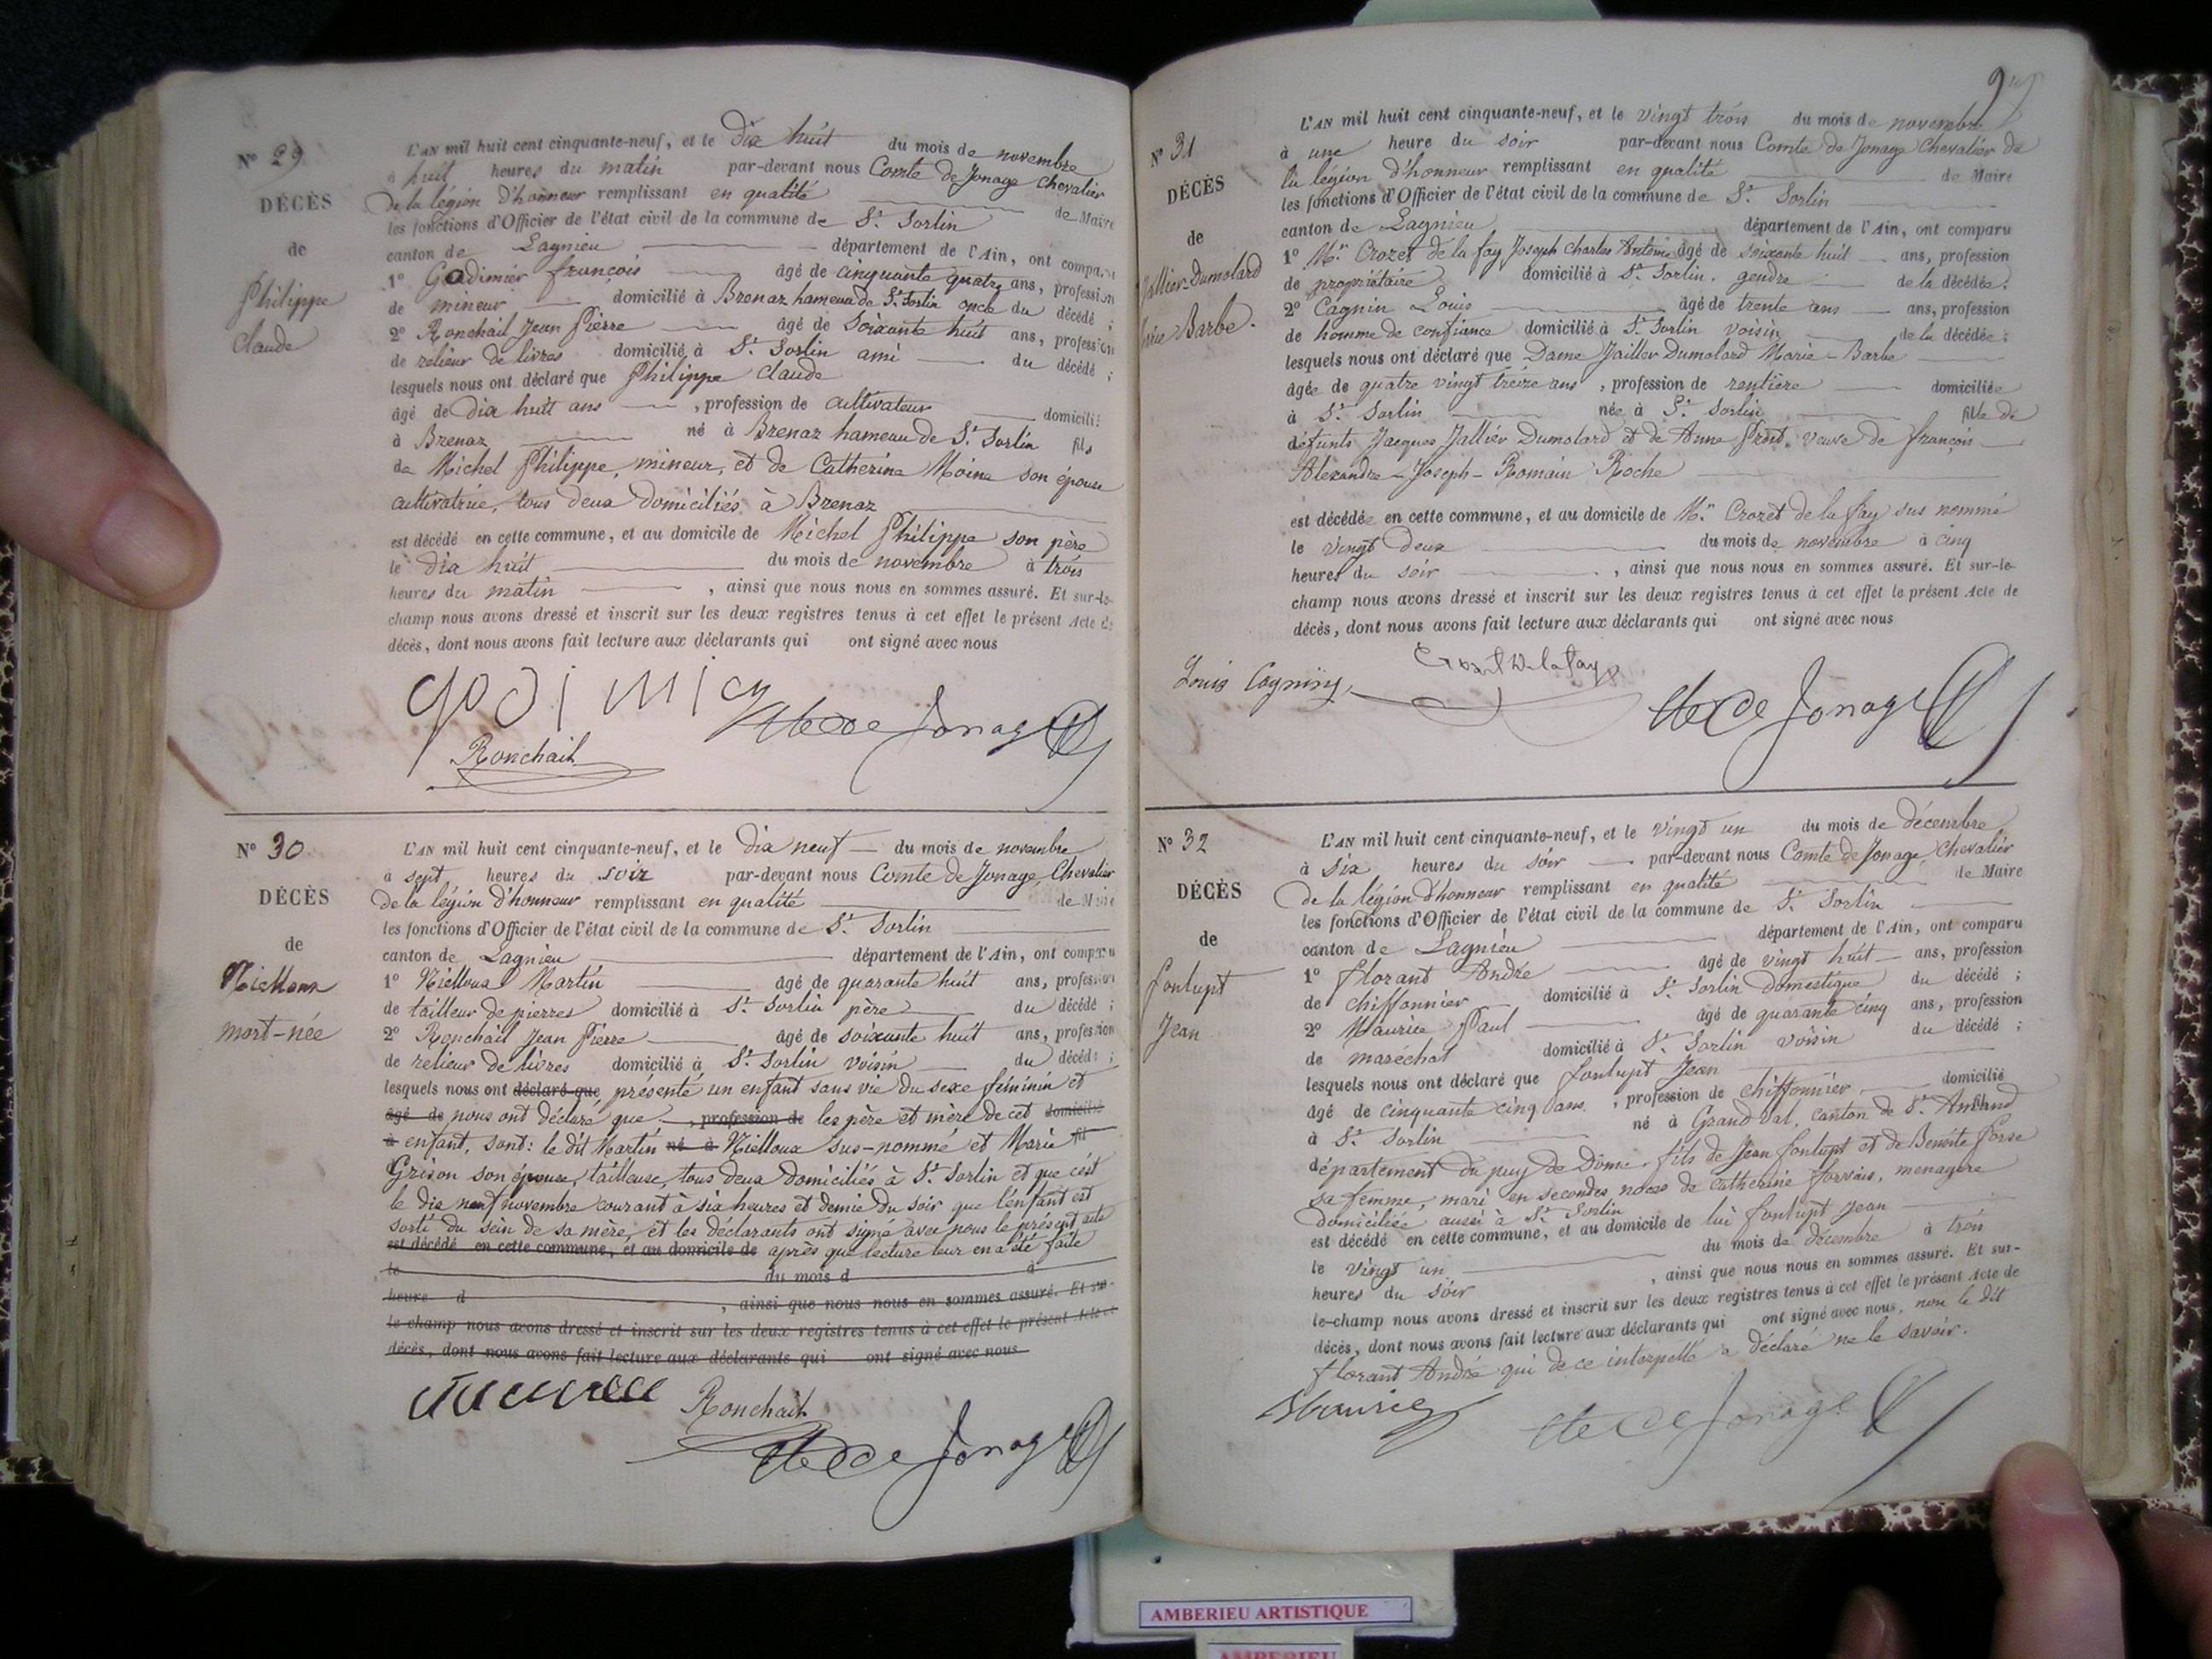 Nº 29
DÉCÈS
de
Philippe
Claude
L'AN mil huit cent cinquante-neuf, et le dix huit du mois de novembre
à huit heures du matin par-devant nous Comte de Jonage Chevalier
De la légion d'honneur remplissant en qualité de Maire
les fonctions d'Officier de l'état civil de la commune de St Sorlin
canton de Lagnieu département de l'Ain, ont comparu
1º Godimier françois âgé de cinquante quatre ans, profession
de mineur domicilié à Brenaz hameau de St Sorlin oncle du décédé ;
2º Ronchail Jean Pierre âgé de soixante huit ans, profession
de relieur de livres domicilié à St Sorlin ami du décédé ;
lesquels nous ont déclaré que Philippe Claude
âgé de dix huit ans , profession de cultivateur domicilié
à Brenaz né à Brenaz hameau de St Sorlin fils
de Michel Philippe, mineur, et de Catherine Moine son épouse
cultivatrice, tous deux domiciliés à Brenaz
est décédé en cette commune, et au domicile de Michel Philippe son père
le dix huit du mois de novembre à trois
heures du matin , ainsi que nous nous en sommes assuré. Et sur-le-
champ nous avons dressé et inscrit sur les deux registres tenus à cet effet le présent Acte de
décès, dont nous avons fait lecture aux déclarants qui ont signé avec nous
godimier
Cte de Jonage
Ronchail
Nº 30
DÉCÈS
de
Nielloux
mort-née
L'AN mil huit cent cinquante-neuf, et le dix neuf du mois de novembre
à sept heures du soir par-devant nous Comte de Jonage, Chevalier
De la légion d'honneur remplissant en qualité de Maire
les fonctions d'Officier de l'état civil de la commune de St Sorlin
canton de Lagnieu département de l'Ain, ont comparu
1º Nielloux Martin âgé de quarante huit ans, profession
de tailleur de pierres domicilié à St Sorlin père du décédé ;
2º Ronchail Jean Pierre âgé de soixante huit ans, profession
de relieur de livres domicilié à St Sorlin voisin du décédé ;
lesquels nous ont déclaré que présenté un enfant sans vie du sexe féminin et
âgé de nous ont déclaré que , profession de les père et mère de cet domicilié
à enfant, sont: le dit Martin né à Nielloux sus-nommé et Marie fil
Grison son épouse, tailleuse, tous deux domiciliés à St Sorlin et que c'est
le dix neuf novembre courant à six heures et demie du soir que l'enfant est
sorti du sein de sa mère, et les déclarants ont signé avec nous le présent acte
est décédé en cette commune, et au domicile de après que lecture leur en a été faite
le du mois d à
heure d , ainsi que nous nous en sommes assuré. Et sur-
le-champ nous avons dressé et inscrit sur les deux registres tenus à cet effet le présent Acte de
décès, dont nous avons fait lecture aux déclarants qui ont signé avec nous
Ronchail
Cte de Jonage
Nº 31
DÉCÈS
de
Jallier-Dumolard
Marie Barbe.
L'AN mil huit cent cinquante-neuf, et le vingt trois du mois de novembre
à une heure du soir par-devant nous Comte de Jonage Chevalier de
la légion d'honneur remplissant en qualité de Maire
les fonctions d'Officier de l'état civil de la commune de St Sorlin
canton de Lagnieu département de l'Ain, ont comparu
1º Mr Crozet de la fay Joseph Charles Antoine âgé de soixante huit ans, profession
de propriétaire domicilié à St Sorlin. gendre de la décédée.
2º Cagnin Louis âgé de trente ans ans, profession
de homme de confiance domicilié à St Sorlin voisin de la décédée ;
lesquels nous ont déclaré que Dame Jallier Dumolard Marie-Barbe
âgée de quatre vingt treize ans , profession de rentière domiciliée
à St Sorlin née à St Sorlin fille de
défunts Jacques Jallier Dumolard et de Anne veuve de françois
Alexandre-Joseph-Romain Roche
est décédée en cette commune, et au domicile de Mr Crozet de la fay sus nommé
le vingt deux du mois de novembre à cinq
heures du soir , ainsi que nous nous en sommes assuré. Et sur-le-
champ nous avons dressé et inscrit sur les deux registres tenus à cet effet le présent Acte de
décès, dont nous avons fait lecture aux déclarants qui ont signé avec nous
Louis Cagniny
Crozet Delafay
Cte de Jonage
Nº 32
DÉCÈS
de
fontupt
Jean
L'AN mil huit cent cinquante-neuf, et le vingt un du mois de décembre
à six heures du soir par-devant nous Comte de Jonage, Chevalier
De la légion d'honneur remplissant en qualité de Maire
les fonctions d'Officier de l'état civil de la commune de St Sorlin
canton de Lagnieu département de l'Ain, ont comparu
1º florant André âgé de vingt huit ans, profession
de chiffonnier domicilié à St Sorlin domestique du décédé ;
2º Maurice Paul âgé de quarante cinq ans, profession
de maréchal domicilié à St Sorlin voisin du décédé ;
lesquels nous ont déclaré que fontupt Jean
âgé de cinquante cinq ans , profession de chiffonnier domicilié
à St Sorlin né à Grand Val, canton de St Amand
département du puy de Dôme. fils de Jean fontupt et de Benoîte
sa femme, mari en secondes noces de Catherine forvais, menagère
domiciliée aussi à St Sorlin
est décédé en cette commune, et au domicile de lui fontupt Jean
le vingt un du mois de décembre à trois
heures du soir , ainsi que nous nous en sommes assuré. Et sur-
le-champ nous avons dressé et inscrit sur les deux registres tenus à cet effet le présent Acte de
décès, dont nous avons fait lecture aux déclarants qui ont signé avec nous, non le dit
florant André qui de ce interpellé a déclaré ne le savoir.
Maurice
Cte de Jonage
AMBERIEU ARTISTIQUE
AMBERIEU